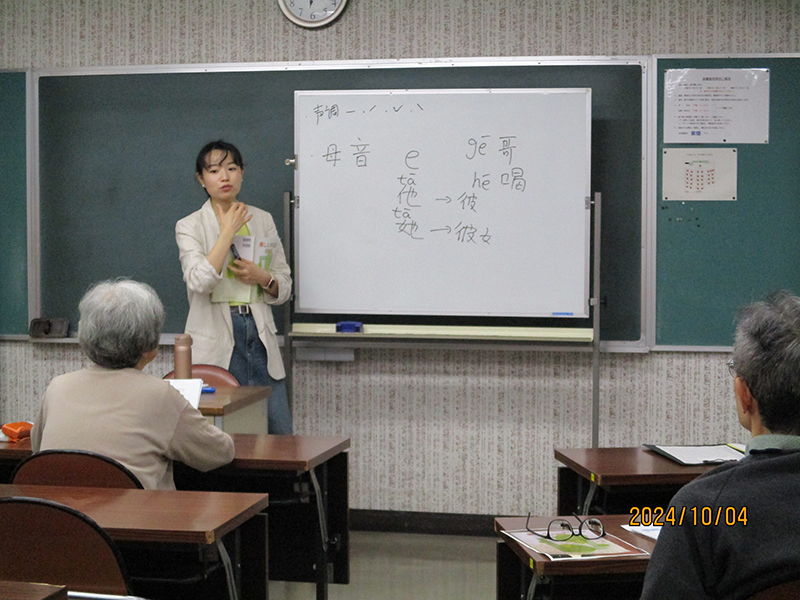 声调 ー ˊ ˇ ˋ
母音 e gē 哥
tā hē 喝
他 → 彼
tā
她 → 彼女
2024/10/04